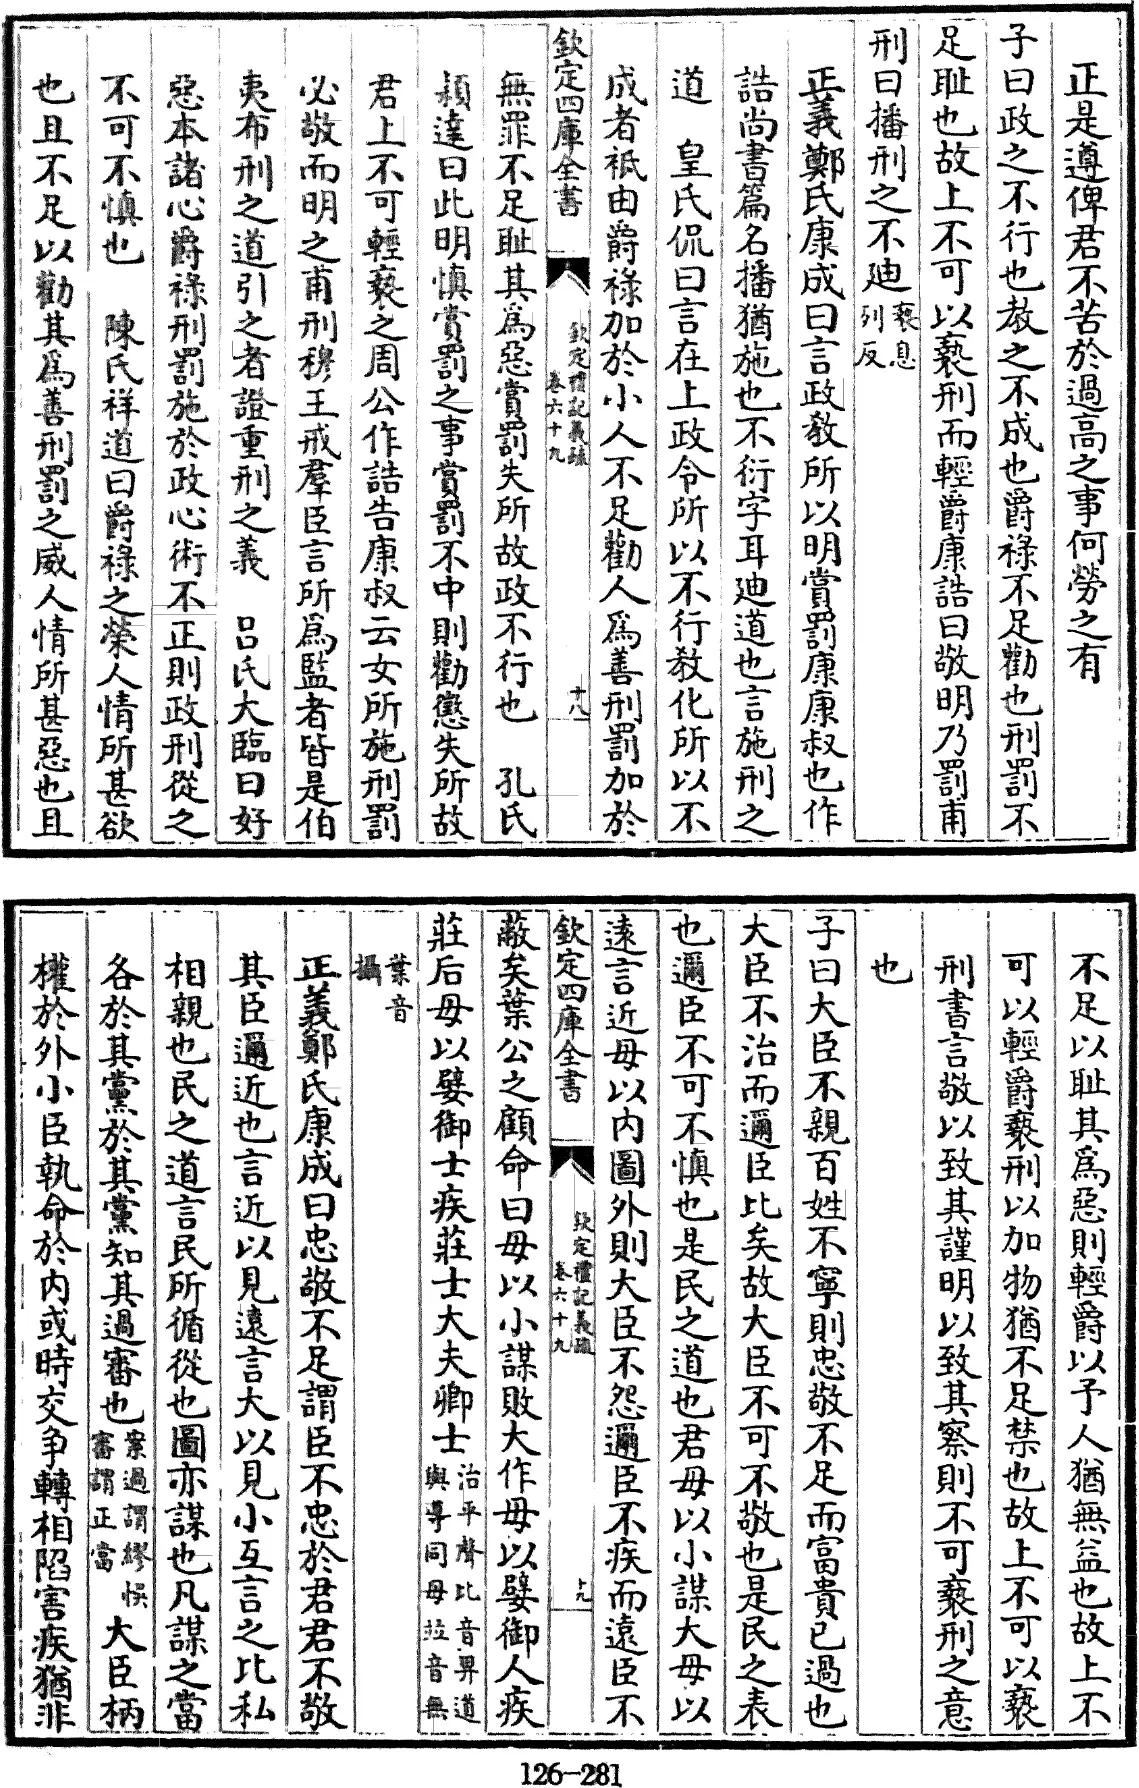 正是遵俾君不苦於過高之事何勞之有
子曰政之不行也教之不成也爵祿不足勸也刑罰不
足耻也故上不可以䙝刑而輕爵康誥曰敬明乃罰甫
刑曰播刑之不廸䙝息列反
正義鄭氏康成曰言政教所以明賞罰康康叔也作
誥尚書篇名播猶施也不衍字耳廸道也言施刑之
道　皇氏侃曰言在上政令所以不行教化所以不
成者祇由爵祿加於小人不足勸人爲善刑罰加於
欽定四庫全書
欽定禮記義疏
卷六十九
十八
無罪不足耻其爲惡賞罰失所故政不行也　孔氏
穎達曰此明慎賞罰之事賞罰不中則勸懲失所故
君上不可輕䙝之周公作誥告康叔云女所施刑罰
必敬而明之甫刑穆王戒羣臣言所爲監者皆是伯
夷布刑之道引之者證重刑之義　呂氏大臨曰好
惡本諸心爵祿刑罰施於政心術不正則政刑從之
不可不慎也　陳氏祥道曰爵祿之榮人情所甚欲
也且不足以勸其爲善刑罰之威人情所甚惡也且
不足以耻其爲惡則輕爵以予人猶無益也故上不
可以輕爵䙝刑以加物猶不足禁也故上不可以䙝
刑書言敬以致其謹明以致其察則不可䙝刑之意
也
子曰大臣不親百姓不寧則忠敬不足而富貴已過也
大臣不治而邇臣比矣故大臣不可不敬也是民之表
也邇臣不可不慎也是民之道也君毋以小謀大毋以
遠言近毋以内圖外則大臣不怨邇臣不疾而遠臣不
欽定四庫全書
欽定禮記義疏
卷六十九
十九
蔽矣葉公之顧命曰毋以小謀敗大作毋以嬖御人疾
莊后毋以嬖御士疾莊士大夫卿士治平聲比音畀道與導同毋並音無
葉音攝
正義鄭氏康成曰忠敬不足謂臣不忠於君君不敬
其臣邇近也言近以見遠言大以見小互言之比私
相親也民之道言民所循從也圖亦謀也凡謀之當
各於其黨於其黨知其過審也案過謂繆悞審謂正當　大臣柄
權於外小臣執命於内或時交争轉相陷害疾猶非
126-281